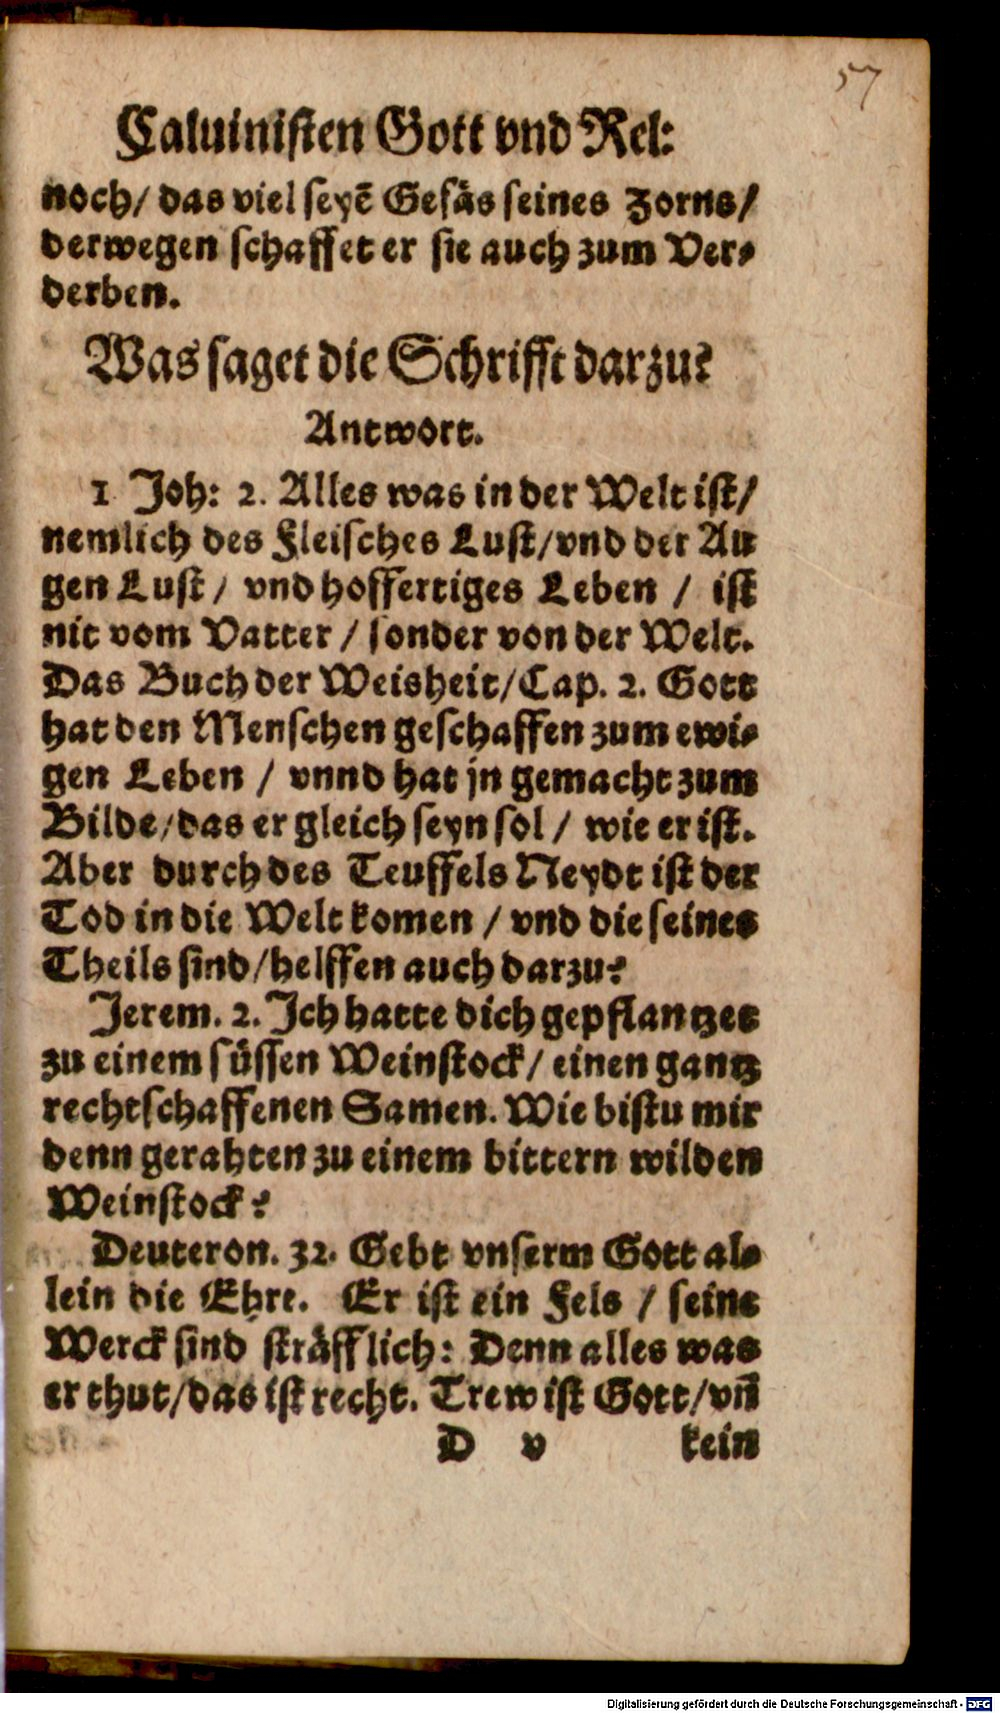 57
Caluinisten Gott vnd Rel:
noch/ das viel seyē Gefäs seines Zorns/
derwegen schaffet er sie auch zum Ver-
derben.
Was saget die Schrifft darzu?
Antwort.
1 Joh: 2. Alles was in der Welt ist/
nemlich des Fleisches Lust/vnd der Au
gen Lust/ vnd hoffertiges Leben / ist
nit vom Vatter / sonder von der Welt.
Das Buch der Weisheit/Cap. 2. Gott
hat den Menschen geschaffen zum ewi-
gen Leben / vnnd hat jn gemacht zum
Bilde/das er gleich seyn sol / wie er ist.
Aber durch des Teuffels Neydt ist der
Tod in die Welt komen / vnd die seines
Theils sind/helffen auch darzu?
Jerem. 2. Ich hatte dich gepflantzet
zu einem süssen Weinstock/ einen gantz
rechtschaffenen Samen. Wie bistu mir
denn gerahten zu einem bittern wilden
Weinstock?
Deuteron. 32. Gebt vnserm Gott al-
lein die Ehre. Er ist ein Fels / seine
Werck sind sträfflich: Denn alles was
er thut/das ist recht. Trew ist Gott/vn̄
D v kein
Digitalisierung gefördert durch die Deutsche Forschungsgemeinschaft - DFG